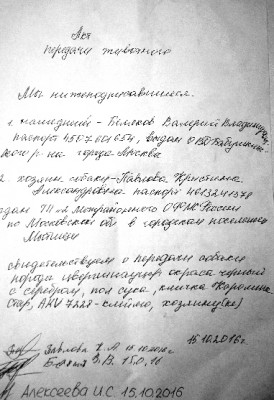 Акт
передачи животного
Мы нижеподписавшиеся.
1. нашедший - Валерий Владимирович
паспорт 4507601654, выдан ОВД Бабушкин-
ского р-на города Москва
2. хозяин собаки - Павлова Кристина
Александровна паспорт 4613241579
выдан ТП №2 межрайонного ОФМС России
по Московской обл в городском поселении
Мытищи
свидетельствуем о передаче собаки
порода цвергшнауцер окраса черный
с серебром, пол сука, кличка
AKV 7228 - клеймо, хозяину(ке)
15.10.2016г
Павлова К.А 15.10.2016г
В.В. 15.10.16
Алексеева И.С. 15.10.2016